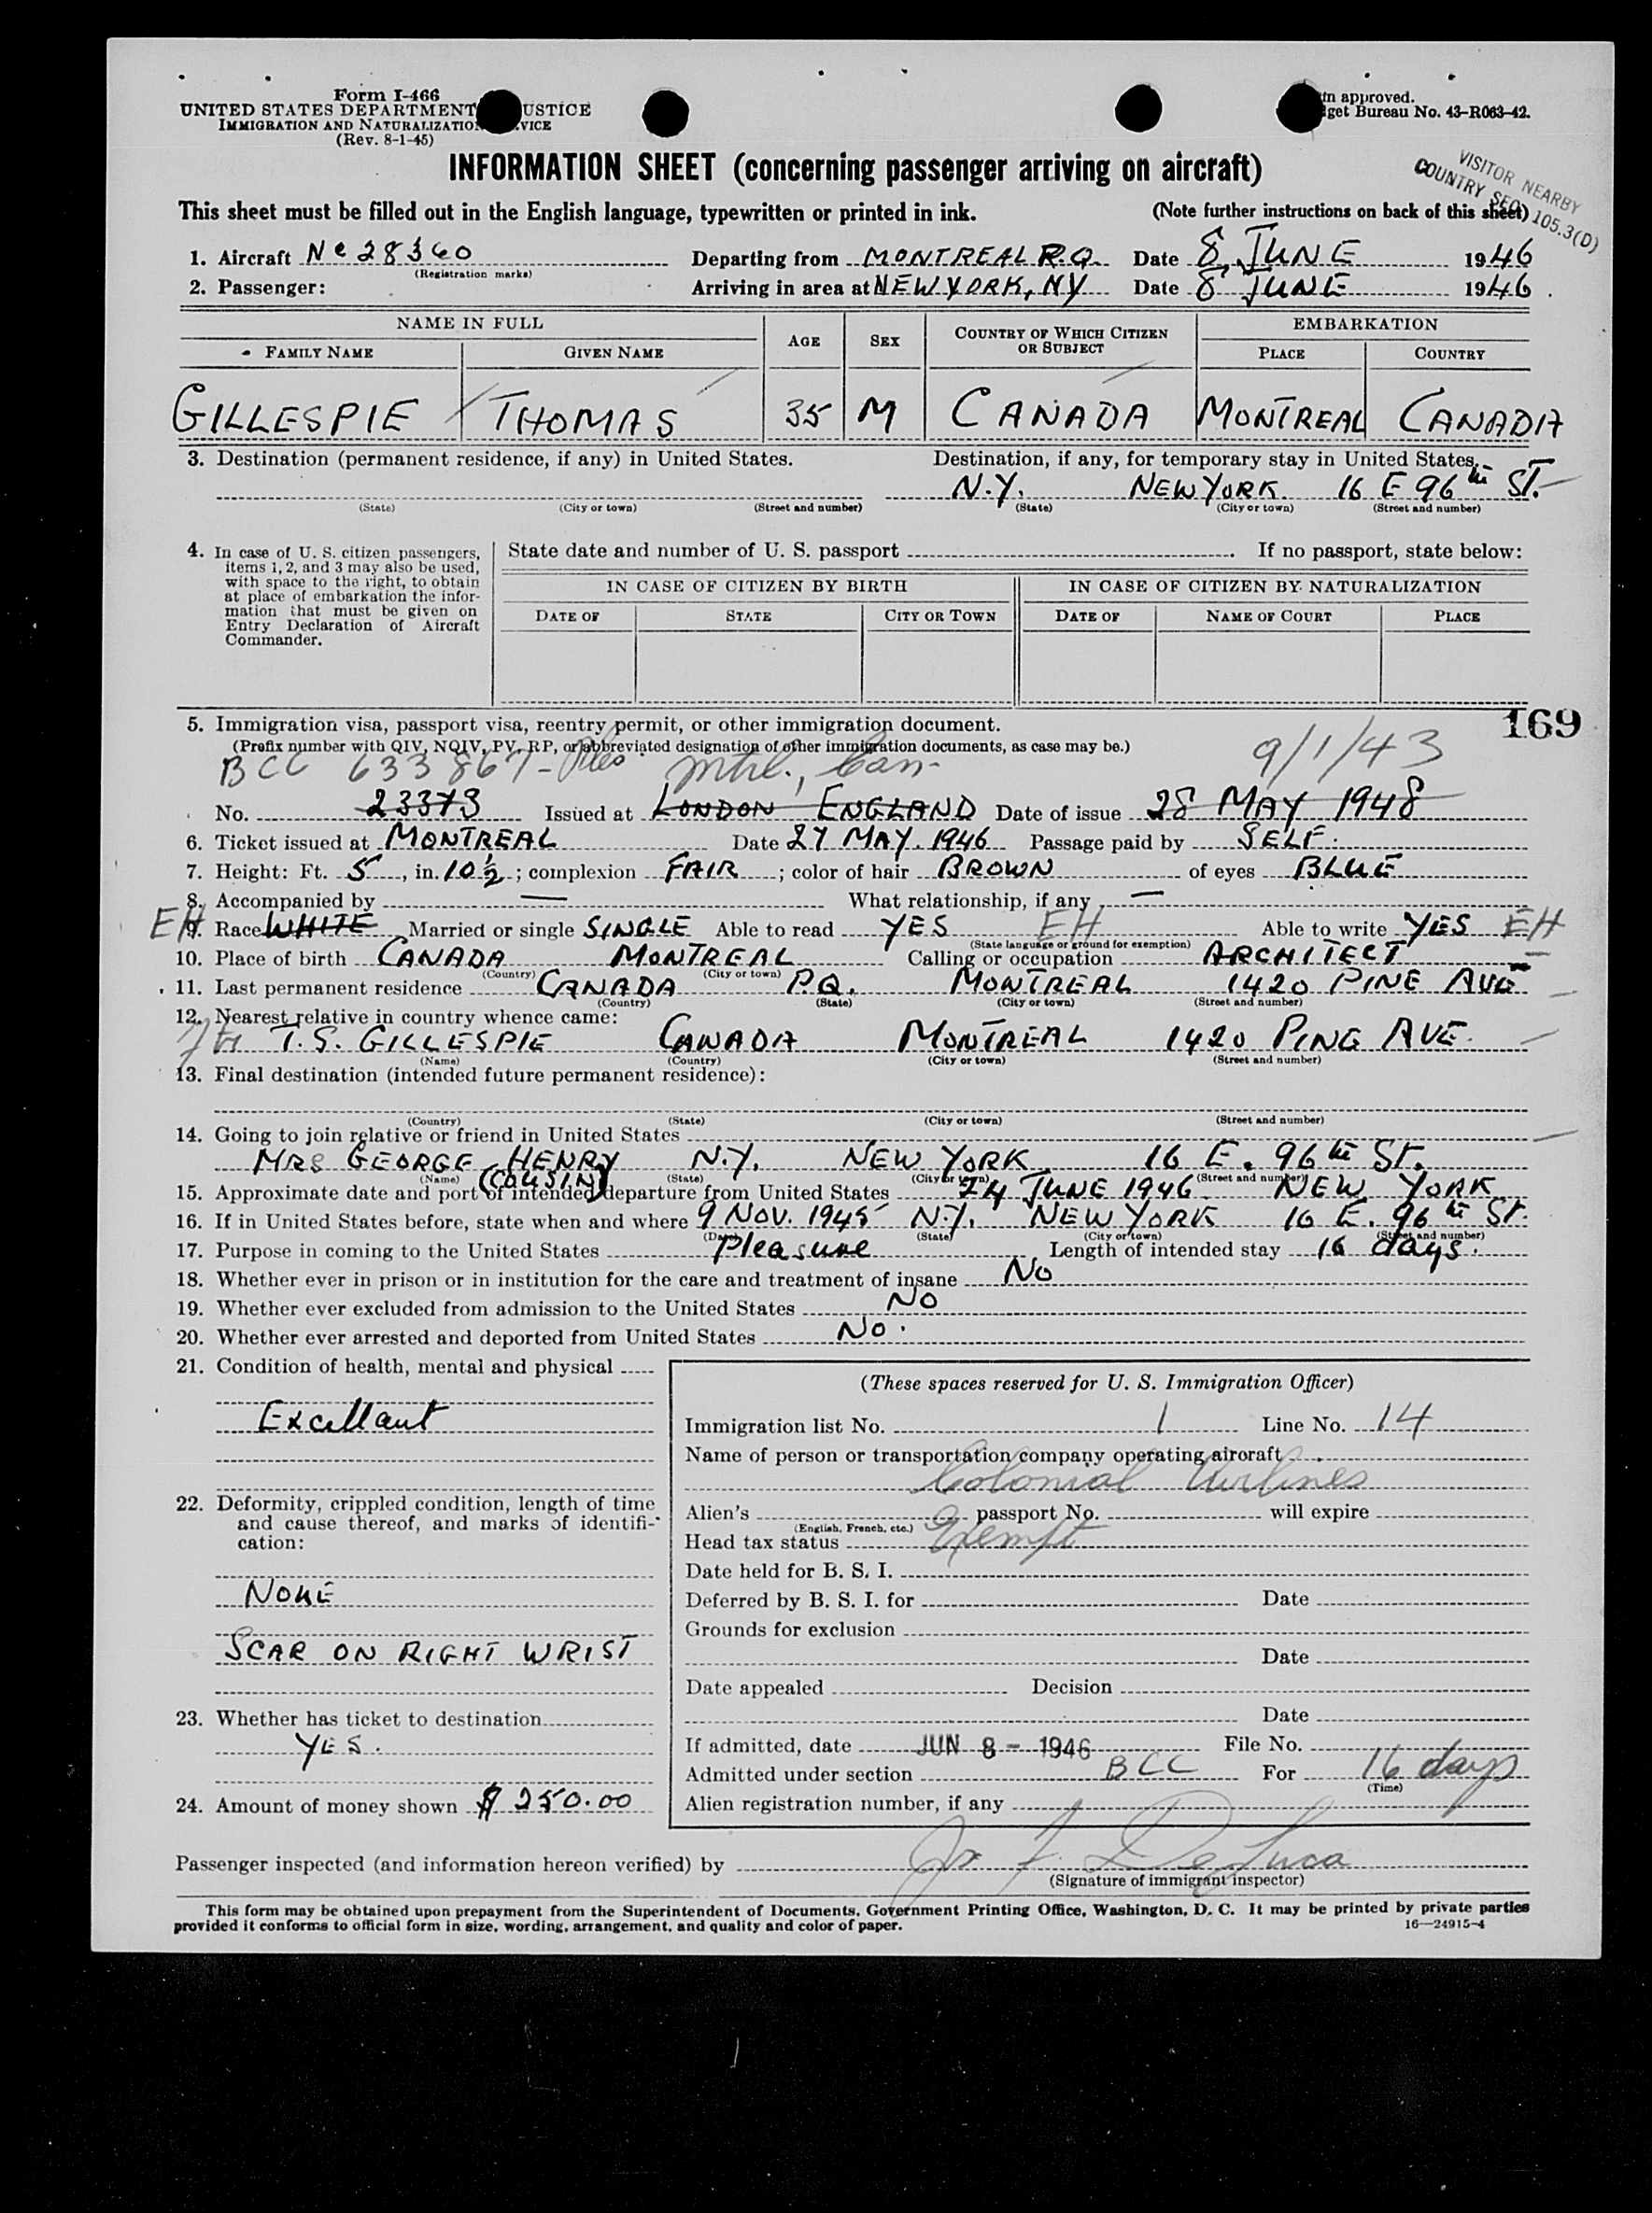 Form I-466
UNITED STATES DEPARTMENT USTICE
IMMIGRATION AND NATURALIZATION VICE
(Rev. 8-1-45)
approved.
get Bureau No. 43-R063-42.
INFORMATION SHEET (concerning passenger arriving on aircraft)
VISITOR NEARBY
COUNTRY SEC. 105.3(D)
This sheet must be filled out in the English language, typewritten or printed in ink. (Note further instructions on back of this sheet)
1. Aircraft Nc 28360 Departing from MONTREAL P.Q. Date 8 JUNE 1946
(Registration marks)
2. Passenger: Arriving in area at NEW YORK, NY Date 8 JUNE 1946
NAME IN FULL AGE SEX COUNTRY OF WHICH CITIZEN OR SUBJECT EMBARKATION
FAMILY NAME GIVEN NAME PLACE COUNTRY
GILLESPIE THOMAS 35 M CANADA MONTREAL CANADA
3. Destination (permanent residence, if any) in United States. Destination, if any, for temporary stay in United States.
N.Y. NEW YORK 16 E 96th ST.
(State) (City or town) (Street and number) (State) (City or town) (Street and number)
4. In case of U. S. citizen passengers, items 1, 2, and 3 may also be used, with space to the right, to obtain at place of embarkation the information that must be given on Entry Declaration of Aircraft Commander.
State date and number of U. S. passport . If no passport, state below:
IN CASE OF CITIZEN BY BIRTH IN CASE OF CITIZEN BY NATURALIZATION
DATE OF STATE CITY OR TOWN DATE OF NAME OF COURT PLACE
169
5. Immigration visa, passport visa, reentry permit, or other immigration document.
(Prefix number with QIV, NQIV, PV, RP, or abbreviated designation of other immigration documents, as case may be.)
BCC 633867 - Mtrl., Can. 9/1/43
No. 23373 Issued at LONDON ENGLAND Date of issue 28 MAY 1948
6. Ticket issued at MONTREAL Date 27 MAY. 1946 Passage paid by SELF.
7. Height: Ft. 5, in. 10 1/2; complexion FAIR; color of hair BROWN of eyes BLUE
8. Accompanied by — What relationship, if any —
EH 9. Race WHITE Married or single SINGLE Able to read YES EH Able to write YES EH
(State language or ground for exemption)
10. Place of birth CANADA MONTREAL Calling or occupation ARCHITECT
(Country) (City or town)
11. Last permanent residence CANADA P.Q. MONTREAL 1420 PINE AVE
(Country) (State) (City or town) (Street and number)
12. Nearest relative in country whence came:
T. S. GILLESPIE CANADA MONTREAL 1420 PINE AVE.
(Name) (Country) (City or town) (Street and number)
13. Final destination (intended future permanent residence):
(Country) (State) (City or town) (Street and number)
14. Going to join relative or friend in United States
MRS GEORGE HENRY N.Y. NEW YORK 16 E. 96th St.
(Name) (COUSIN) (State) (City or town) (Street and number)
15. Approximate date and port of intended departure from United States 24 JUNE 1946 NEW YORK
16. If in United States before, state when and where 9 NOV. 1945 N.Y. NEW YORK 16 E. 96th St.
(Date) (State) (City or town) (Street and number)
17. Purpose in coming to the United States Pleasure Length of intended stay 16 days.
18. Whether ever in prison or in institution for the care and treatment of insane No
19. Whether ever excluded from admission to the United States No
20. Whether ever arrested and deported from United States No.
21. Condition of health, mental and physical
Excellant
22. Deformity, crippled condition, length of time and cause thereof, and marks of identification:
NONE
SCAR ON RIGHT WRIST
23. Whether has ticket to destination
YES.
24. Amount of money shown $ 250.00
(These spaces reserved for U. S. Immigration Officer)
Immigration list No. 1 Line No. 14
Name of person or transportation company operating aircraft
Colonial Airlines
Alien's passport No. will expire
(English, French, etc.)
Head tax status Exempt
Date held for B. S. I.
Deferred by B. S. I. for Date
Grounds for exclusion
Date
Date appealed Decision
Date
If admitted, date JUN 8 - 1946 File No.
Admitted under section BCC For 16 days
(Time)
Alien registration number, if any
Passenger inspected (and information hereon verified) by F. DeLuca
(Signature of immigrant inspector)
This form may be obtained upon prepayment from the Superintendent of Documents, Government Printing Office, Washington, D. C. It may be printed by private parties
provided it conforms to official form in size, wording, arrangement, and quality and color of paper. 16—24915-4